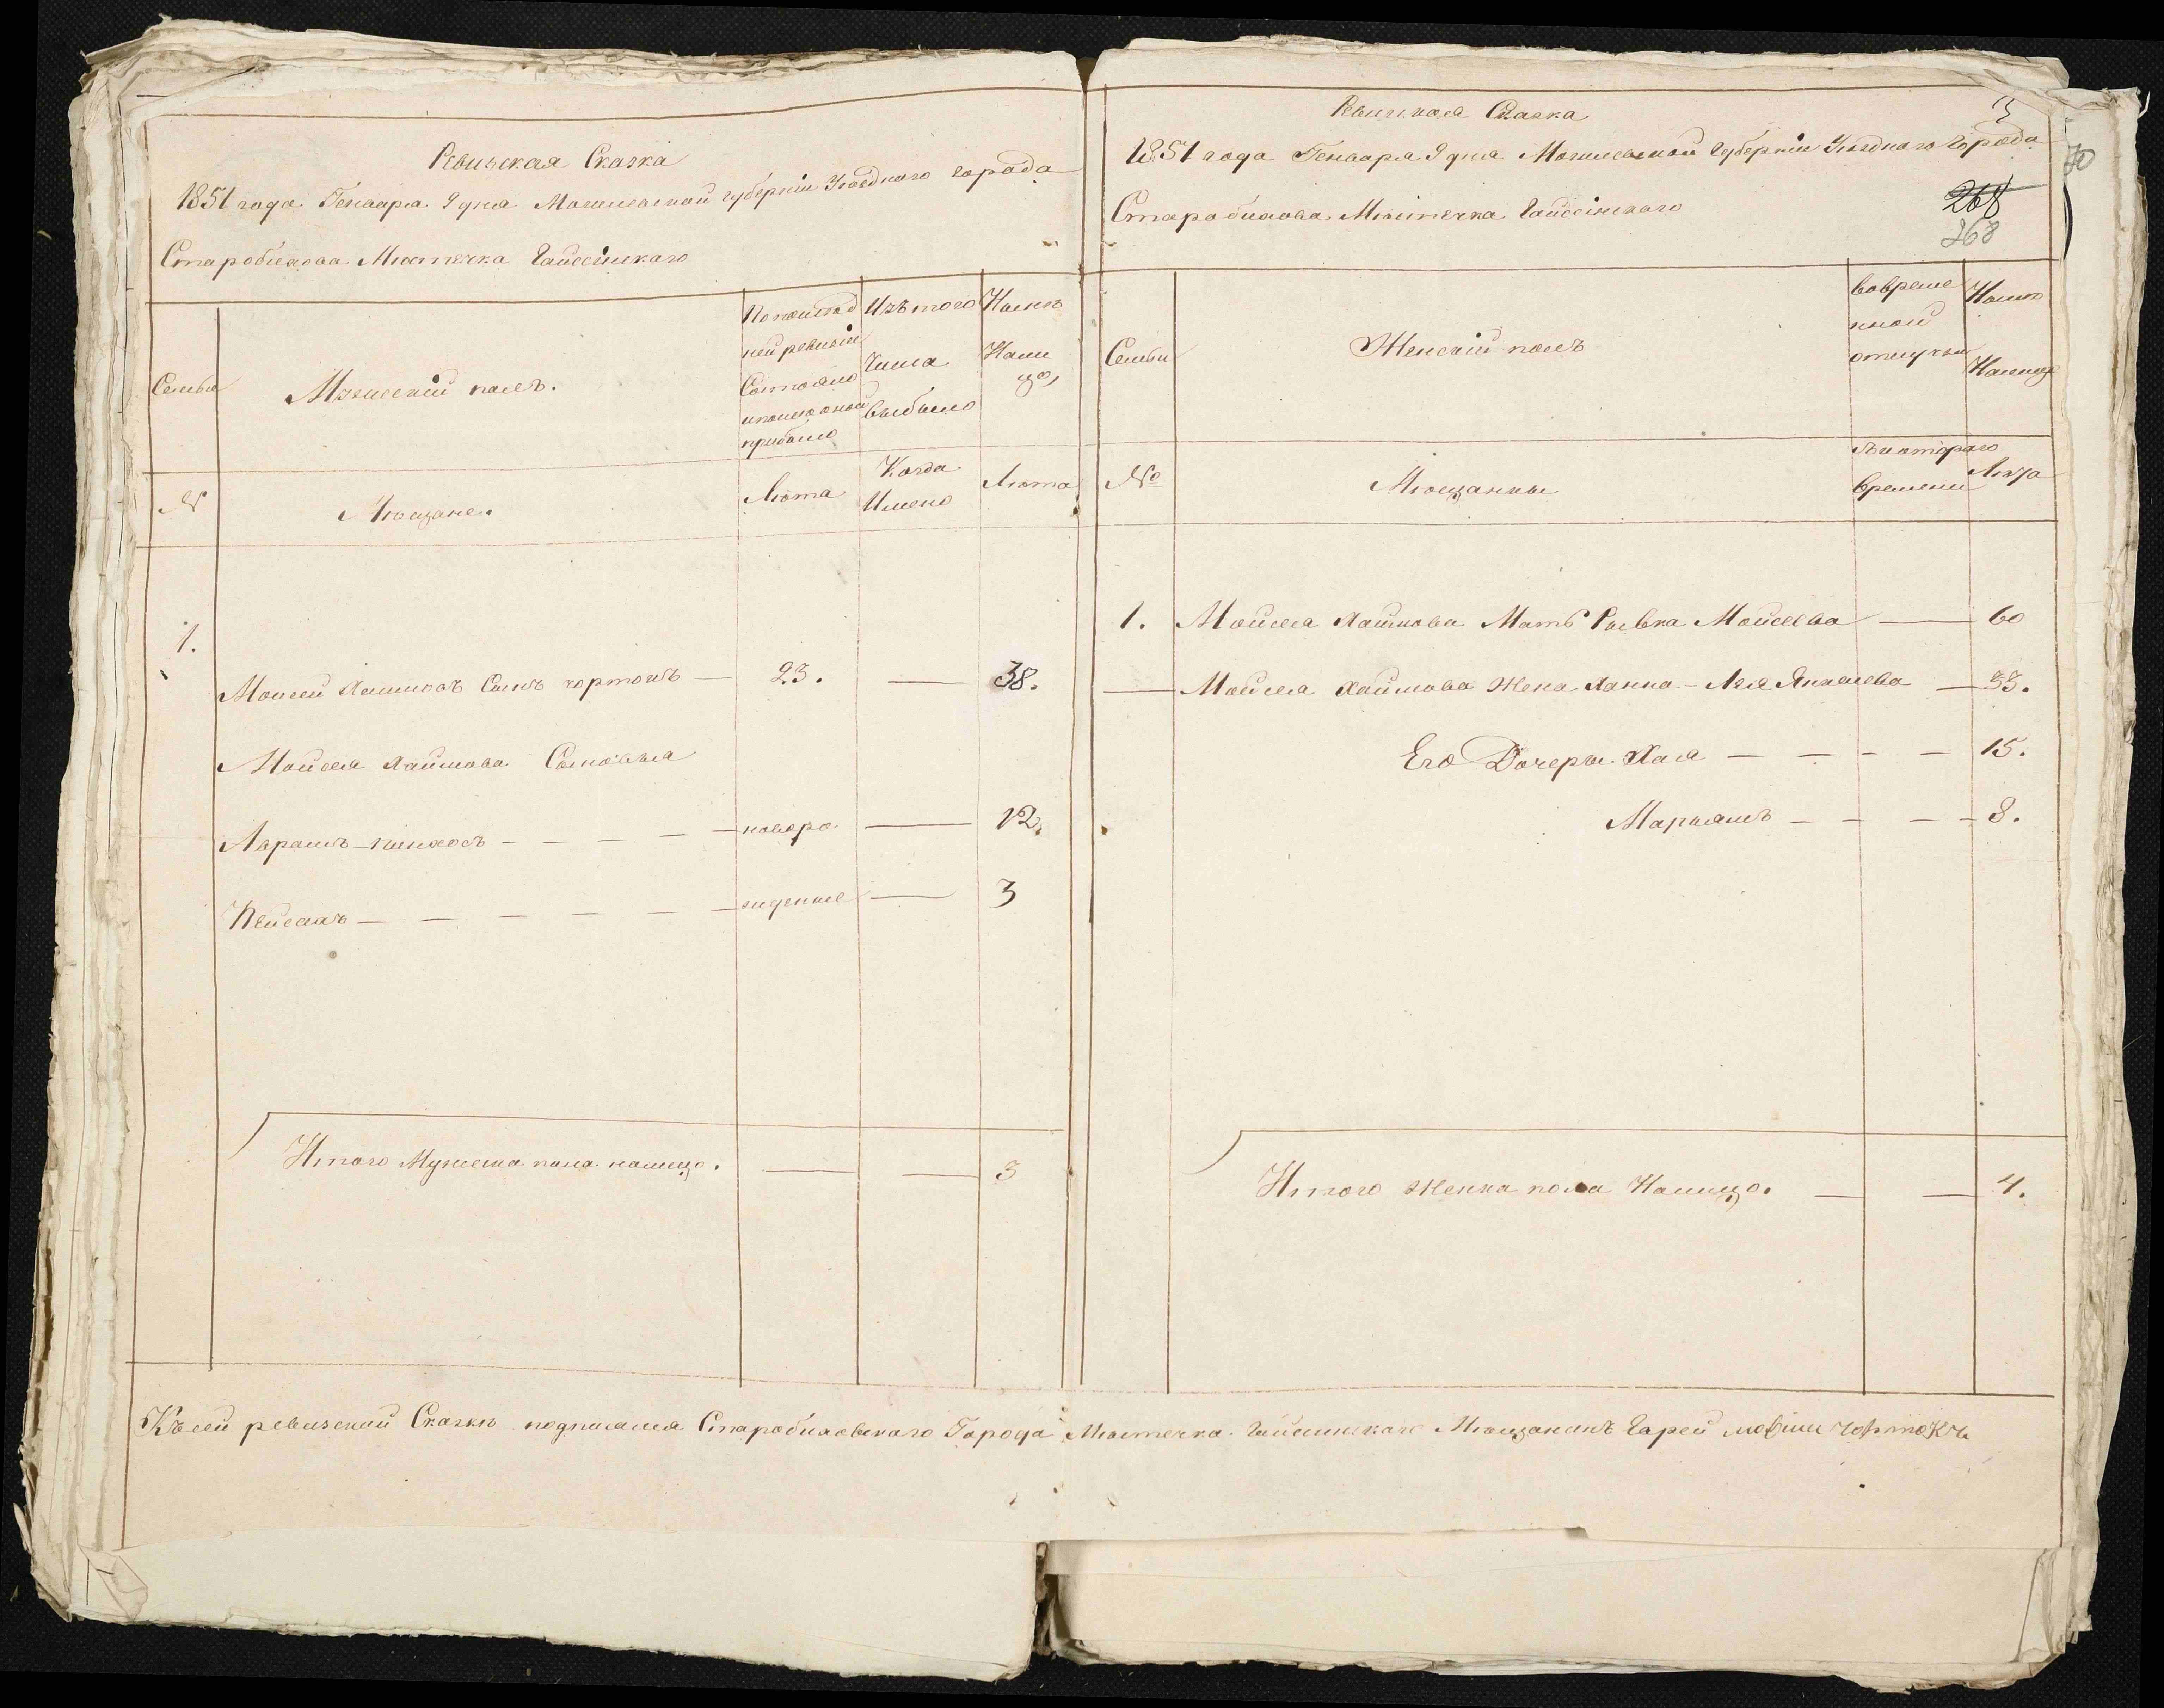 Ревиская Сказка
1851 года Генваря 9 дня Могилевской губерніи Уѣзднаго города
Старобыхова Мѣстечка Гайссинскаго
Семьи
Мужескій полъ.
По послѣд
ней ревизіи
Состояло
и после оной
прибыло
Изъ того
Числа
выбыло
Нынѣ
На ли
цо,
№
Мѣщане.
Лѣта
Когда
Имено
Лѣта
1.
Мовсей Хаимовъ Сынъ чортокъ — 23. — 38.
Мойсея Хаимова Сыновья
Абрамъ-пинхосъ — — — — новоро — 12.
Пейсахъ — — — — — жденые — 3
Итого Мужеска пола налицо. — — 3
Ревизская Сказка
1851 года Генваря 9 дня Могилевской Губерніи Уѣзднаго Города
Старобыхова Мѣстечка Гайссинскаго
268
268
Семьи
Женскій полъ
Вовреме
нной
отлучки
Нынѣ
Налицо
№
Мѣщанки
Съкотораго
времени
Лѣта
1. Мойсея Хаимова Мать Рывка Мойсеева — 60
— Мойсея Хаимова Жена Ханна-Лея Янкелева — 33.
Его Дочери Хая — — — — 15.
Марьямъ — — — — 8.
Итого Женска пола Налицо. — — 4.
Къ сей ревизской Сказкѣ подписался Старобыховскаго Города Мѣстечка Гайсинскаго Мѣщанинъ Гарей мовши Чортокъ